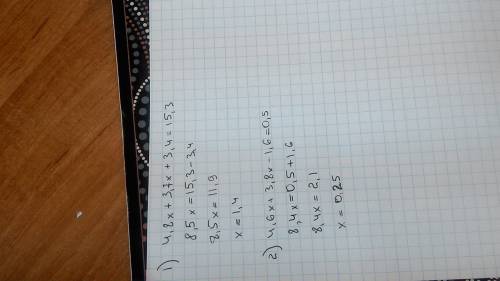 1) 4,8x + 3,7x + 3,4 = 15,3
8,5x = 15,3 - 3,4
8,5x = 11,9
x = 1,4
2) 4,6x + 3,8x - 1,6 = 0,5
8,4x = 0,5 + 1,6
8,4x = 2,1
x = 0,25